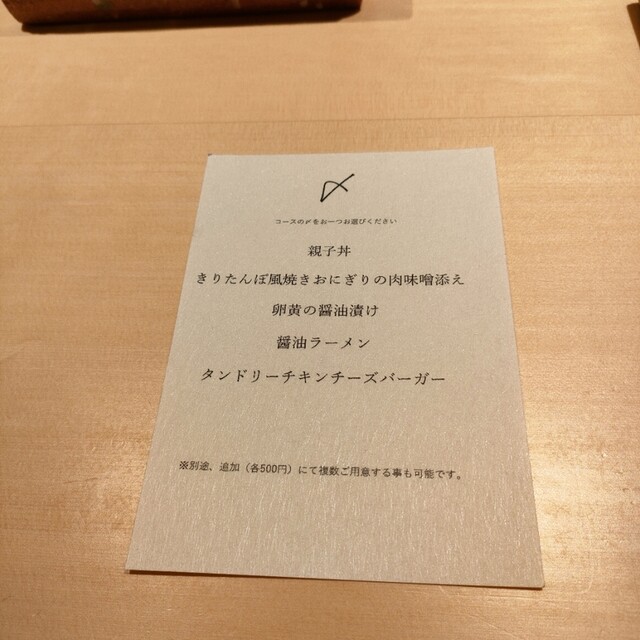 〆
コースの〆をお一つお選びください
親子丼
きりたんぽ風焼きおにぎりの肉味噌添え
卵黄の醤油漬け
醤油ラーメン
タンドリーチキンチーズバーガー
※別途、追加（各500円）にて複数ご用意する事も可能です。